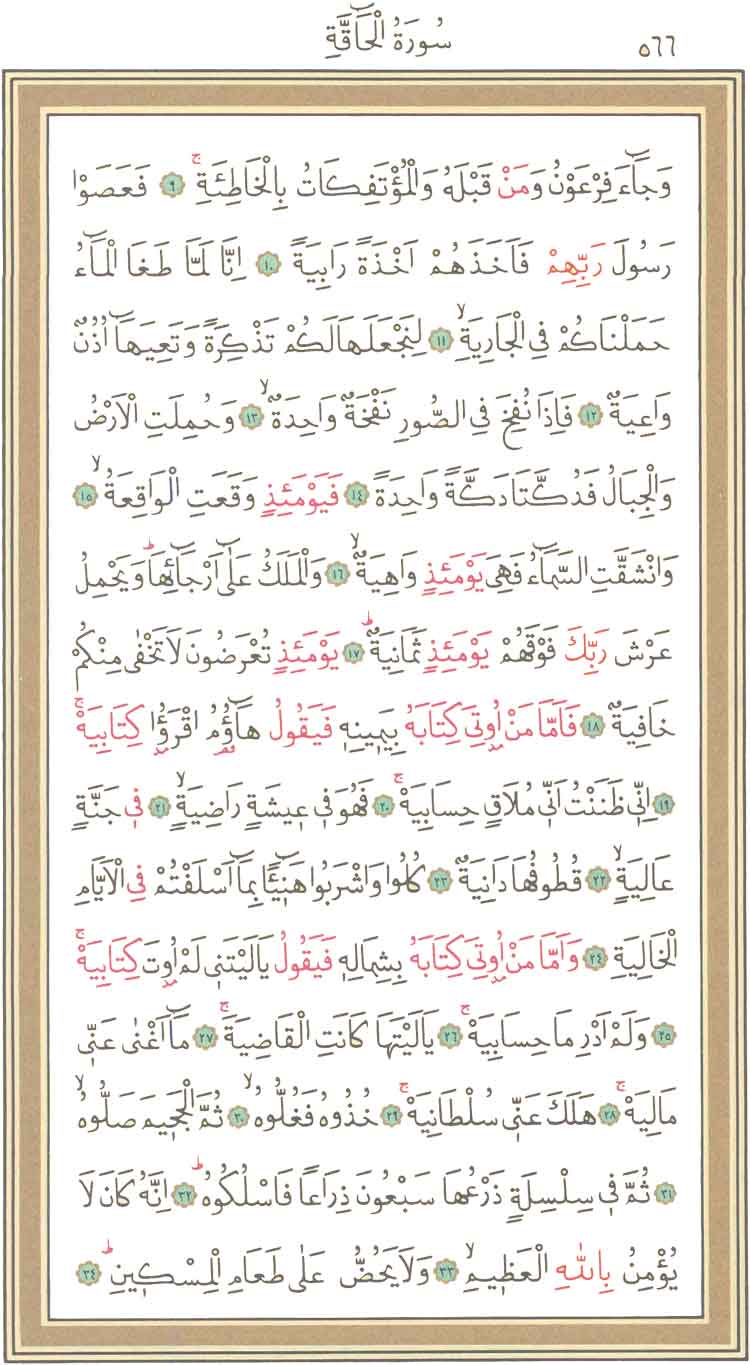 سُورَةُ الْحَآقَّةِ ٥٦٦
وَجَٓاءَ فِرْعَوْنُ وَمَنْ قَبْلَهُ وَالْمُؤْتَفِكَاتُ بِالْخَاطِئَةِۚ ﴿٩﴾ فَعَصَوْا
رَسُولَ رَبِّهِمْ فَاَخَذَهُمْ اَخْذَةً رَابِيَةً ﴿١٠﴾ اِنَّا لَمَّا طَغَا الْمَٓاءُ
حَمَلْنَاكُمْ فِي الْجَارِيَةِۙ ﴿١١﴾ لِنَجْعَلَهَا لَكُمْ تَذْكِرَةً وَتَعِيَهَٓا اُذُنٌ
وَاعِيَةٌ ﴿١٢﴾ فَاِذَا نُفِخَ فِي الصُّورِ نَفْخَةٌ وَاحِدَةٌۙ ﴿١٣﴾ وَحُمِلَتِ الْاَرْضُ
وَالْجِبَالُ فَدُكَّتَا دَكَّةً وَاحِدَةً ﴿١٤﴾ فَيَوْمَئِذٍ وَقَعَتِ الْوَاقِعَةُۙ ﴿١٥﴾
وَانْشَقَّتِ السَّمَٓاءُ فَهِيَ يَوْمَئِذٍ وَاهِيَةٌۙ ﴿١٦﴾ وَالْمَلَكُ عَلٰٓى اَرْجَٓائِهَاۜ وَيَحْمِلُ
عَرْشَ رَبِّكَ فَوْقَهُمْ يَوْمَئِذٍ ثَمَانِيَةٌۜ ﴿١٧﴾ يَوْمَئِذٍ تُعْرَضُونَ لَا تَخْفٰى مِنْكُمْ
خَافِيَةٌ ﴿١٨﴾ فَاَمَّا مَنْ اُو۫تِيَ كِتَابَهُ بِيَمِينِهٖ فَيَقُولُ هَٓاؤُ۬مُ اقْرَؤُ۫ا كِتَابِيَهْۚ
﴿١٩﴾ اِنّٖي ظَنَنْتُ اَنّٖي مُلَاقٍ حِسَابِيَهْۚ ﴿٢٠﴾ فَهُوَ فٖي عٖيشَةٍ رَاضِيَةٍۙ ﴿٢١﴾ فٖي جَنَّةٍ
عَالِيَةٍۙ ﴿٢٢﴾ قُطُوفُهَا دَانِيَةٌ ﴿٢٣﴾ كُلُوا وَاشْرَبُوا هَنٖٓيـًٔا بِمَٓا اَسْلَفْتُمْ فِي الْاَيَّامِ
الْخَالِيَةِ ﴿٢٤﴾ وَاَمَّا مَنْ اُو۫تِيَ كِتَابَهُ بِشِمَالِهٖ فَيَقُولُ يَالَيْتَنٖي لَمْ اُو۫تَ كِتَابِيَهْۚ
﴿٢٥﴾ وَلَمْ اَدْرِ مَا حِسَابِيَهْۚ ﴿٢٦﴾ يَالَيْتَهَا كَانَتِ الْقَاضِيَةَۚ ﴿٢٧﴾ مَٓا اَغْنٰى عَنّٖي
مَالِيَهْۚ ﴿٢٨﴾ هَلَكَ عَنّٖي سُلْطَانِيَهْۚ ﴿٢٩﴾ خُذُوهُ فَغُلُّوهُۙ ﴿٣٠﴾ ثُمَّ الْجَحٖيمَ صَلُّوهُۙ
﴿٣١﴾ ثُمَّ فٖي سِلْسِلَةٍ ذَرْعُهَا سَبْعُونَ ذِرَاعًا فَاسْلُكُوهُۜ ﴿٣٢﴾ اِنَّهُ كَانَ لَا
يُؤْمِنُ بِاللّٰهِ الْعَظٖيمِۙ ﴿٣٣﴾ وَلَا يَحُضُّ عَلٰى طَعَامِ الْمِسْكٖينِۜ ﴿٣٤﴾